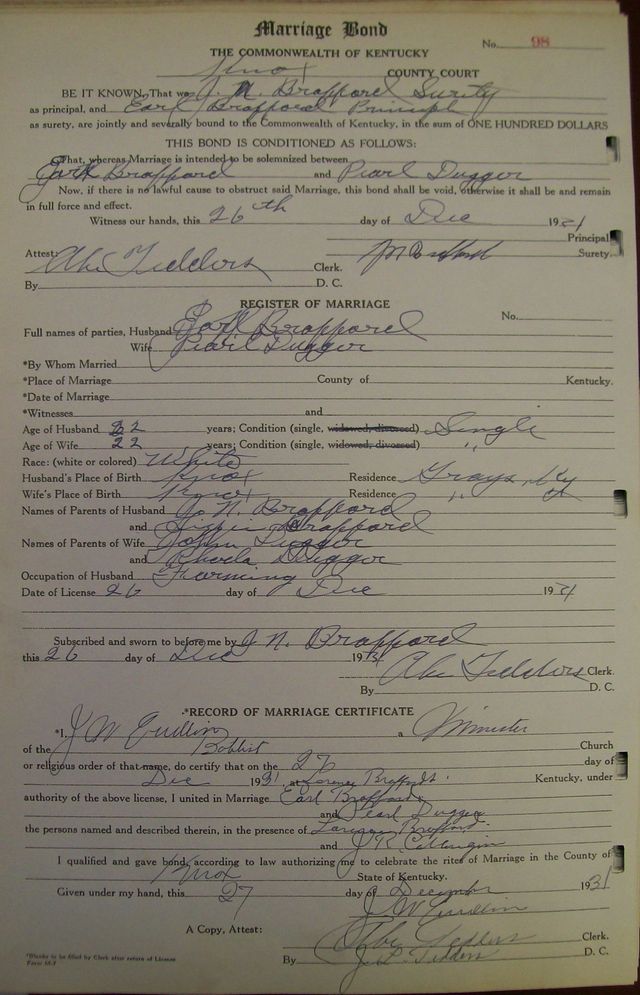 Marriage Bond
No. 98
THE COMMONWEALTH OF KENTUCKY
Knox COUNTY COURT
BE IT KNOWN, That we J. N. Brafford Surity
as principal, and Earl Brafford Principle
as surety, are jointly and severally bound to the Commonwealth of Kentucky, in the sum of ONE HUNDRED DOLLARS
THIS BOND IS CONDITIONED AS FOLLOWS:
That, whereas Marriage is intended to be solemnized between
Earl Brafford and Pearl Dugger
Now, if there is no lawful cause to obstruct said Marriage, this bond shall be void, otherwise it shall be and remain
in full force and effect.
Witness our hands, this 26th day of Dec 1931
Principal
Attest: Abe Tedders Clerk. Surety.
By D. C.
REGISTER OF MARRIAGE
No.
Full names of parties, Husband Earl Brafford
Wife Pearl Dugger
*By Whom Married
*Place of Marriage County of Kentucky.
*Date of Marriage
*Witnesses and
Age of Husband 22 years; Condition (single, widowed, divorced) Single
Age of Wife 22 years; Condition (single, widowed, divorced) "
Race: (white or colored) White
Husband's Place of Birth Knox Residence Grays, Ky
Wife's Place of Birth Knox Residence "
Names of Parents of Husband J. N. Brafford
and Brafford
Names of Parents of Wife John Dugger
and Rhoda Dugger
Occupation of Husband Farming
Date of License 26 day of Dec 1931
Subscribed and sworn to before me by J. N. Brafford
this 26 day of Dec 1931
Abe Tedders Clerk.
By D. C.
*RECORD OF MARRIAGE CERTIFICATE
*I, J W a Minister
of the Babtist Church
or religious order of that name, do certify that on the 27 day of
Dec 1931, at Kentucky, under
authority of the above license, I united in Marriage Earl Brafford
and Pearl Dugger
the persons named and described therein, in the presence of
and J R
I qualified and gave bond, according to law authorizing me to celebrate the rites of Marriage in the County of
Knox State of Kentucky.
Given under my hand, this 27 day of December 1931
J W
A Copy, Attest: Abe Tedders Clerk.
By J. P. Tedders D. C.
*Blanks to be filled by Clerk after return of License